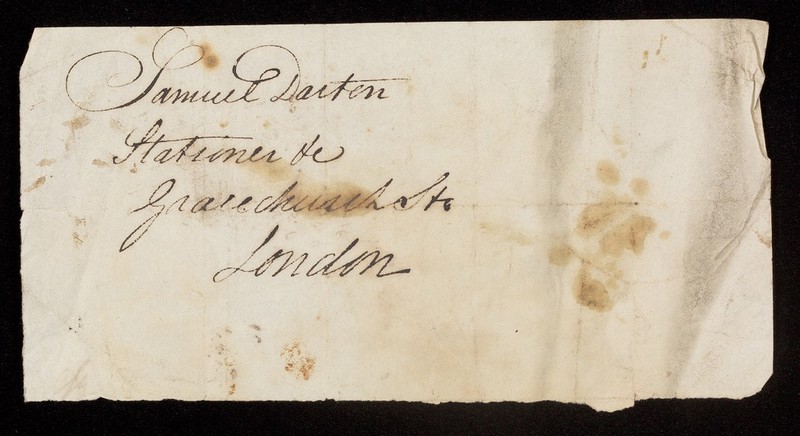 Samuel Darton
Stationer &c
Gracechurch St.
London